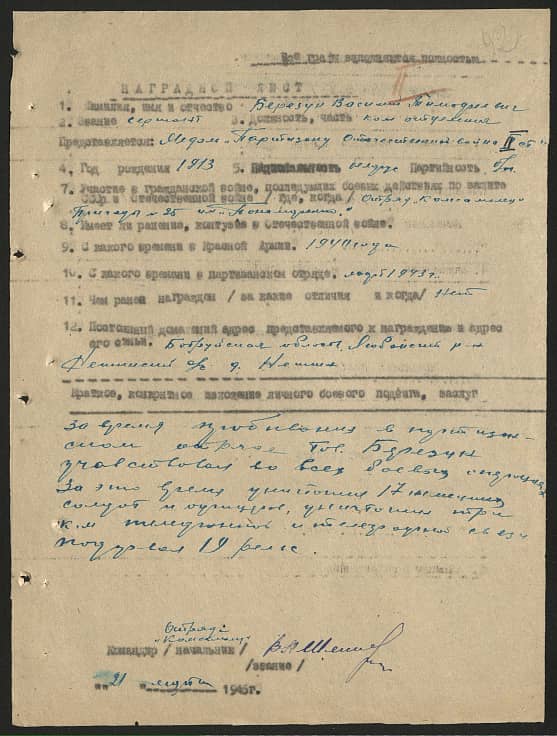 Все графы заполняются полностью
НАГРАДНОЙ ЛИСТ
1. Фамилия, имя и отчество Березун Василий
2. Звание сержант 3. Должность, часть ком отделения
Представляется: Медаль "Партизану Отечественной войны" II ст
4. Год рождения 1913 5. Национальность белорус Партийность
7. Участие в гражданской войне, последующих боевых действиях по защите
СССР и Отечественной войне / где, когда / Отряд Комсомолец
Бригады № 25 им. Пономаренко.
8. Имеет ли ранения, контузии в Отечественной войне.
9. С какого времени в Красной Армии. 1940 года
10. С какого времени в партизанском отряде. 1943 г.
11. Чем ранее награжден / за какие отличия и когда / Нет
12. Постоянный домашний адрес представляемого к награждению и адрес
его семьи. Бобруйская область Любанский р-н
с/с д.
Краткое, конкретное изложение личного боевого подвига, заслуг
За время пребывания в партизан-
ском отряде тов. Березун
участвовал во всех боевых операциях
За это время уничтожил 17 немецких
солдат и офицеров, уничтожил три
км телефонной и телеграфной связи
подорвал 19 рельс.
Отряда
"Комсомолец"
Командир / начальник /
/звание/
"21" марта 1945г.